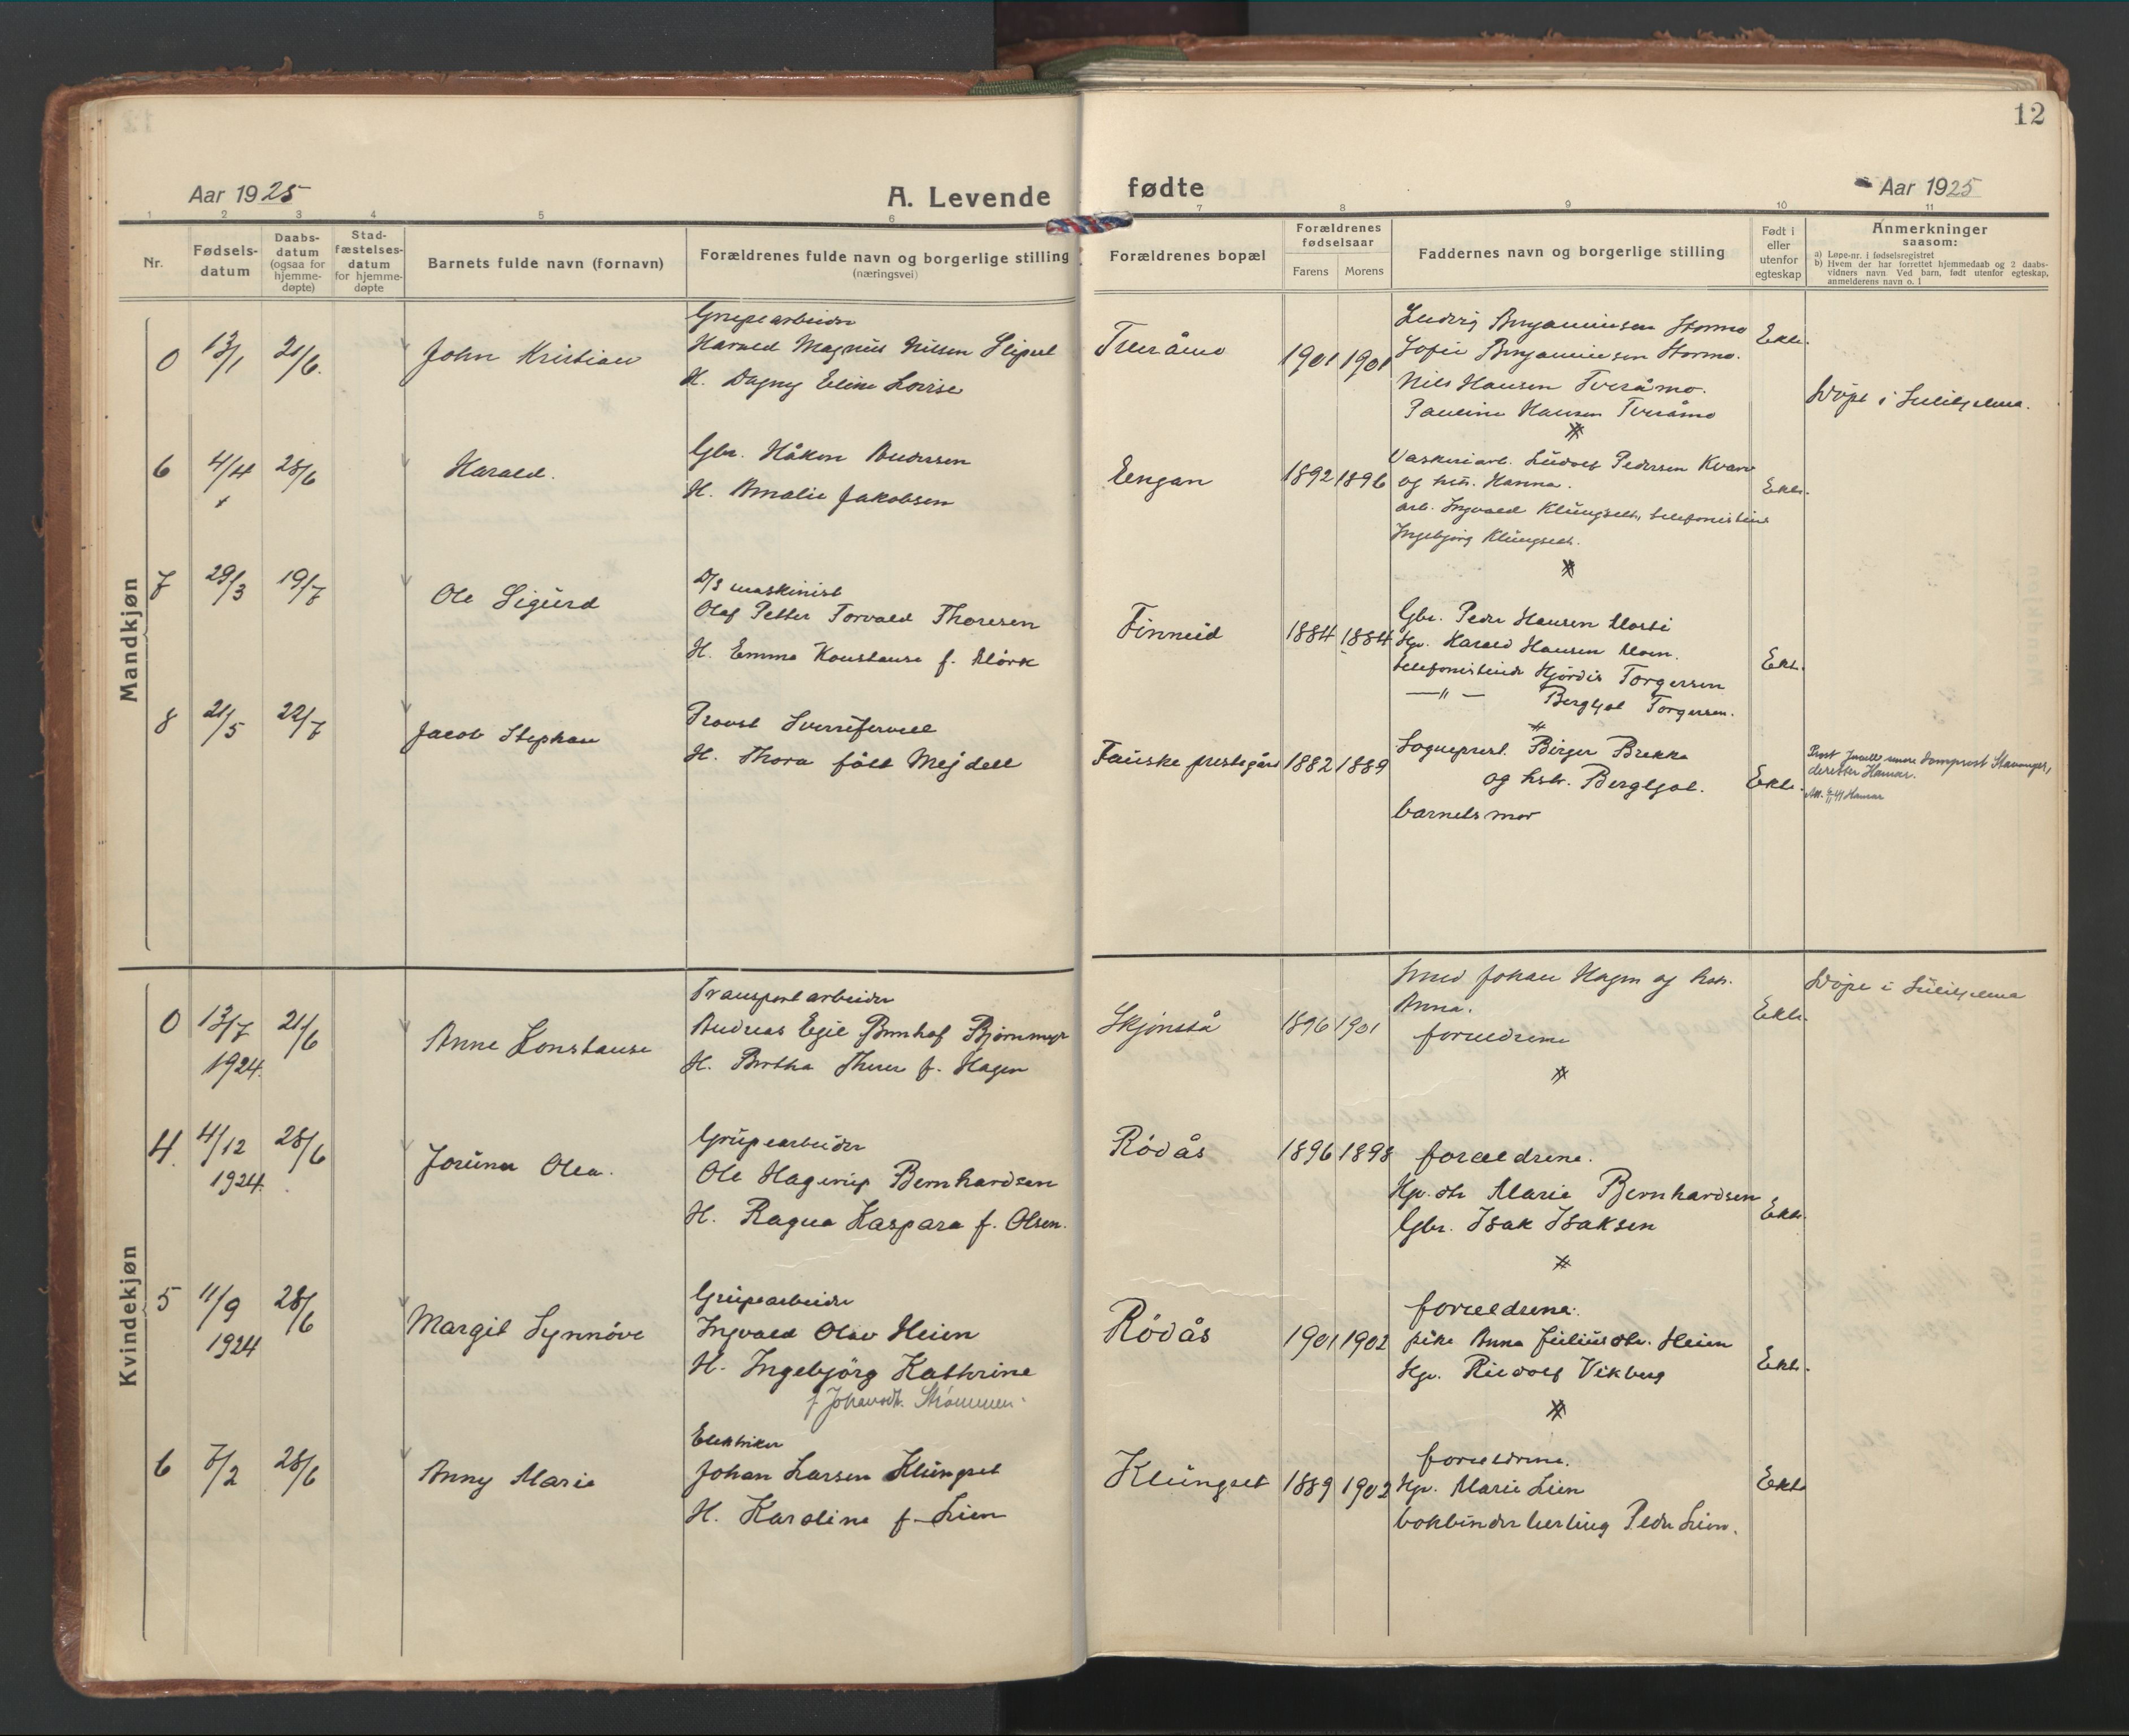 12
Aar 1925
A. Levende
fødte
Aar 1925
1 2 3 4 5 6 7 8 9 10 11
Nr.
Fødsels-
datum
Daabs-
datum
(ogsaa for
hjemme-
døpte)
Stad-
fæstelses-
datum
for hjemme-
døpte
Barnets fulde navn (fornavn)
Forældrenes fulde navn og borgerlige stilling
(næringsvei)
Forældrenes bopæl
Forældrenes
fødselsaar
Farens Morens
Faddernes navn og borgerlige stilling
Født i
eller
utenfor
egteskap
Anmerkninger
saasom:
a) Løpe-nr. i fødselsregistret
b) Hvem der har forrettet hjemmedaab og 2 daabs-
vidners navn. Ved barn, født utenfor egteskap,
anmelderens navn o. l
Mandkjøn
0 13/1 21/6. John Kristian
Grupearbeider
Harald Magnus Nilsen
H. Dagny Eline Lovise
Tveråmo 1901 1901
Ludvig Benjaminsen Stormo
Sofie Benjaminsen Stormo.
Nils Hansen Tveråmo.
Pauline Hansen Tveråmo
Ekte.
Døpt i Sulitjelma.
6 4/4 28/6 Harald.
Gbr. Håkon Andersen
H. Amalie Jakobsen
Engan 1892 1896
Vaskeriarb. Ludolf Pedersen Kvam
og hstr. Hanna.
arb. Ingvald Klungset, telefonistinne
Ingebjørg Klungset.
Ekte.
7 29/3 19/7 Ole Sigurd
D/S maskinist
Olaf Petter Torvald Thoresen
H. Emma Konstanse f. Mörk
Finneid 1884 1884
Gbr. Peder Hansen
Up. Harald Hansen Moen.
telefonistinde Hjördis Torgersen
—"— Bergljot Torgersen.
Ekt.
8 21/5 22/7 Jacob Stephan
Provst Sverre
H. Thora født Mejdell
Fauske prestegård 1882 1889
Sogneprest. Birger Brekke
og hstr. Bergljot.
barnets mor
Ekte.
Prost senere domprost Stavanger,
deretter Hamar.
Hamar
Kvindekjøn
0 13/7 21/6 Anne Konstanse
1924.
Transportarbeider
Andreas Egil Bernhof Bjørnmyr
H. Bertha f. Hagen
Skjønstå 1896 1901
Smed Johan Hagen og hstr.
Anna.
foreldrene
Ekte.
Døpt i Sulitjelma
4. 4/12 28/6 Jorunn Olea.
1924.
Grupearbeider
Ole Hagerup Bernhardsen
H. Ragna Kaspara f. Olsen.
Rödås 1896 1898
forældrene.
Up. dtr Marie Bernhardsen
Gbr. Isak Isaksen
Ekte.
5 11/9 28/6 Margit Synnöve
1924
Grupearbeider
Ingvald Olav Heien
H. Ingebjörg Kathrine
f. Johansdt. Strømmen.
Rödås 1901 1902
forældrene.
pike Anna Juliusdtr. Heien
Up. Rudolf Vikberg
Ekte.
6 7/2 28/6 Anny Marie
Elektriker
Johan Larsen Klungset
H. Karoline f. Lien
Klungset 1889 1902
forældrene.
Up. Marie Lien
bokbinderlærling Peder Lien.
Ekte